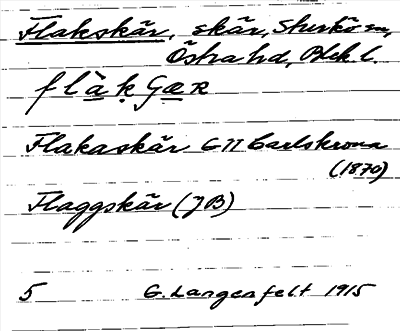 Flakskär, skär, Sturkö sn,
Östra hd, Blek l.
flàkGæR
Flakaskär G77 Carlskrona
(1870)
Flaggskär (JB)
5 G. Langenfelt 1915